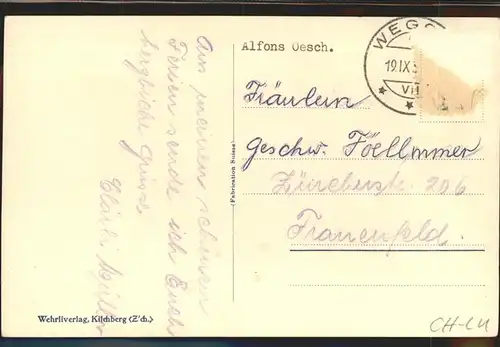 Aus meinen schönen
Ferien sende ich Euch
herzliche Grüsse
Clärli Müller
Wehrliverlag, Kilchberg (Zch.)
(Fabrication Suisse)
Alfons Oesch.
WEGG
19.IX.3
VII
Fräulein
Geschw. Föllmmer
Zürcherstr. 206
Frauenfeld.
CH-LU